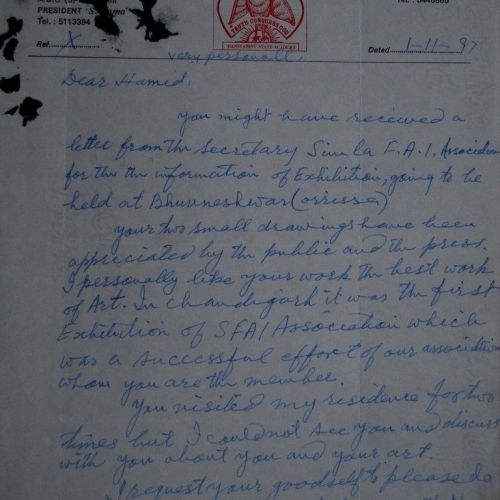 PRESIDENT
Tel.: 5113394
Tel.: 5440866
TRUTH CONQUERS GOD
STATE ACADEMY
Ref. X
Dated 1-11-97
very personall.
Dear Hamid,
you might have received a
letter from the secretary Simla F.A.I. Association
for the the information of Exhibition, going to be
held at Bhuvneshwar (orrissa)
your two small drawings have been
appreciated by the public and the press.
I personally like your work the best work
of Art. In chandigarh it was the first
Exhibition of SFAI Association which
was a successful effort of our association
whom you are the member.
You visited my residence for two
times but I could not see you and discuss
with you about you and your art.
I request your goodself to please do